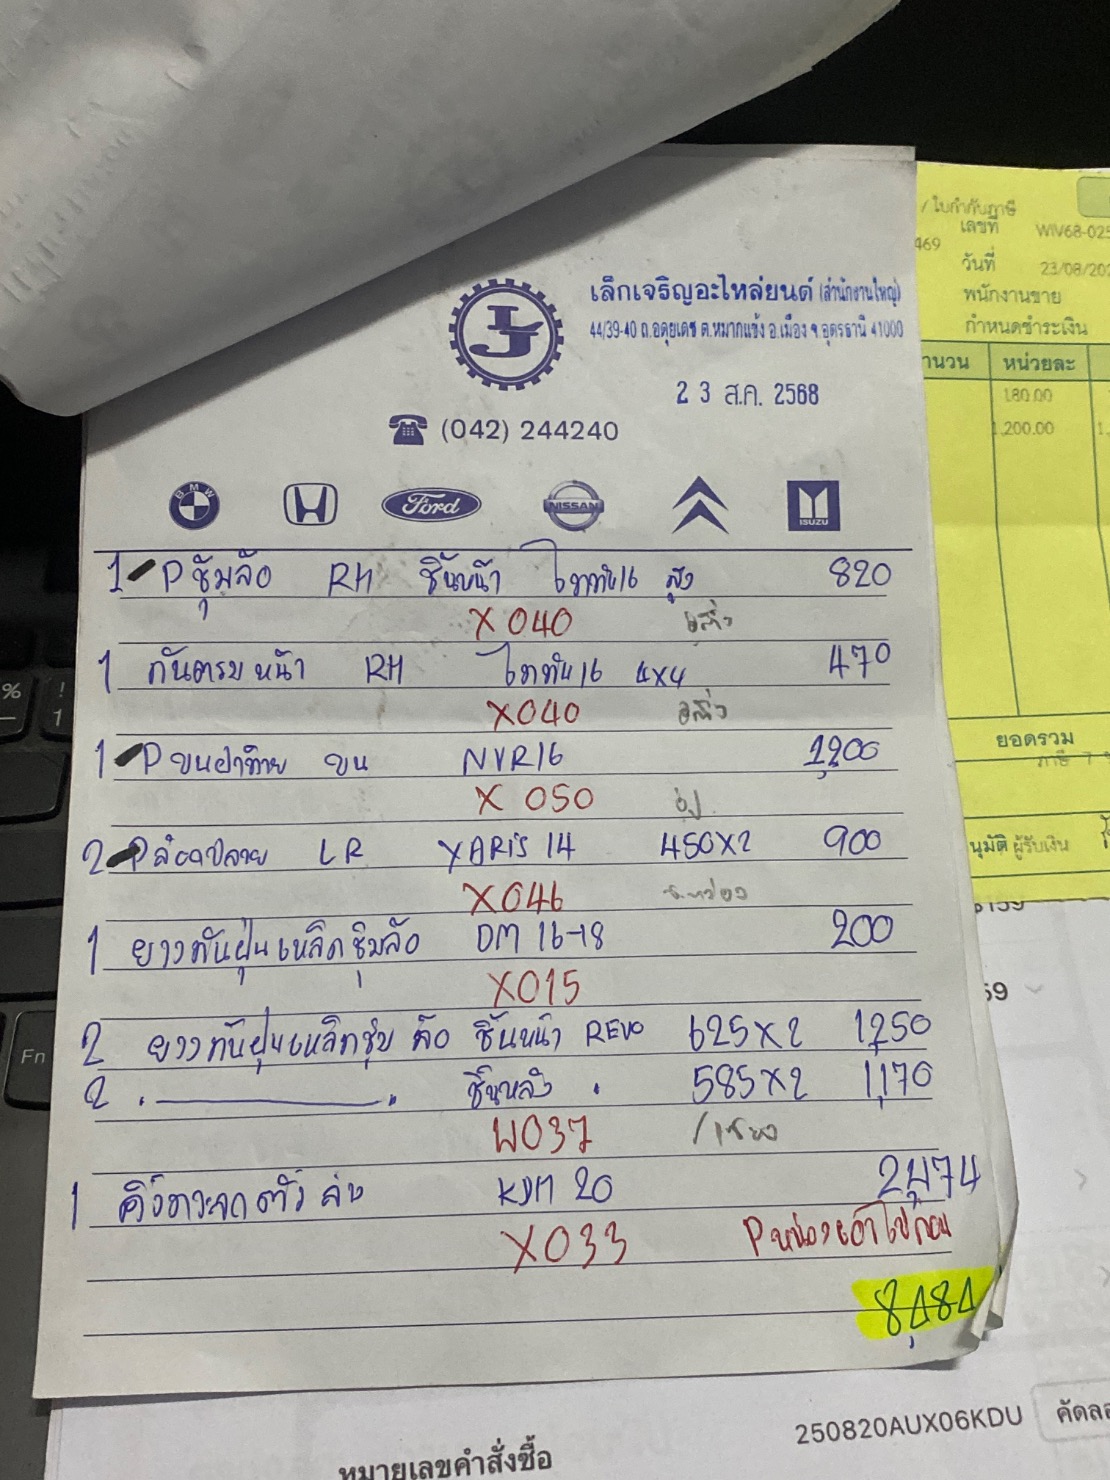 / ใบกำกับภาษี
เลขที่ WIV68-025
469
วันที่ 23/08/202
พนักงานขาย
กำหนดชำระเงิน
านวน หน่วยละ
180.00
1,200.00 1,
ยอดรวม
ภาษี 7
นุมัติ ผู้รับเงิน
เล็กเจริญอะไหล่ยนต์ (สำนักงานใหญ่)
44/39-40 ถ.อดุยเดช ต.หมากแข้ง อ.เมือง จ.อุดรธานี 41000
2 3 ส.ค. 2568
(042) 244240
BMW Ford NISSAN ISUZU
1 P ซุ้มล้อ RH ชิ้นหน้า ไททัน16 สูง 820
X040
1 กันตรบหน้า RH ไททัน16 4x4 470
X040
1 P ขนฝาท้าย บน NVR16 1,200
X 050
2 P ล้อตปลาย LR YARiS 14 450x2 900
X046
1 ยางกันฝุ่นเหล็กซุ้มล้อ DM 16-18 200
X015
2 ยางกันฝุ่นเหล็กซุ้มล้อ ชิ้นหน้า REVO 625x2 1,250
2 . ชิ้นหลัง . 585x2 1,170
W037
1 คิ้วกระจกตัวล่าง KDM 20 2,474
X033 Pหน่องเอาไปก่อน
8,484
59
Fn
%
!
1
250820AUX06KDU คัดลอ
หมายเลขคำสั่งซื้อ